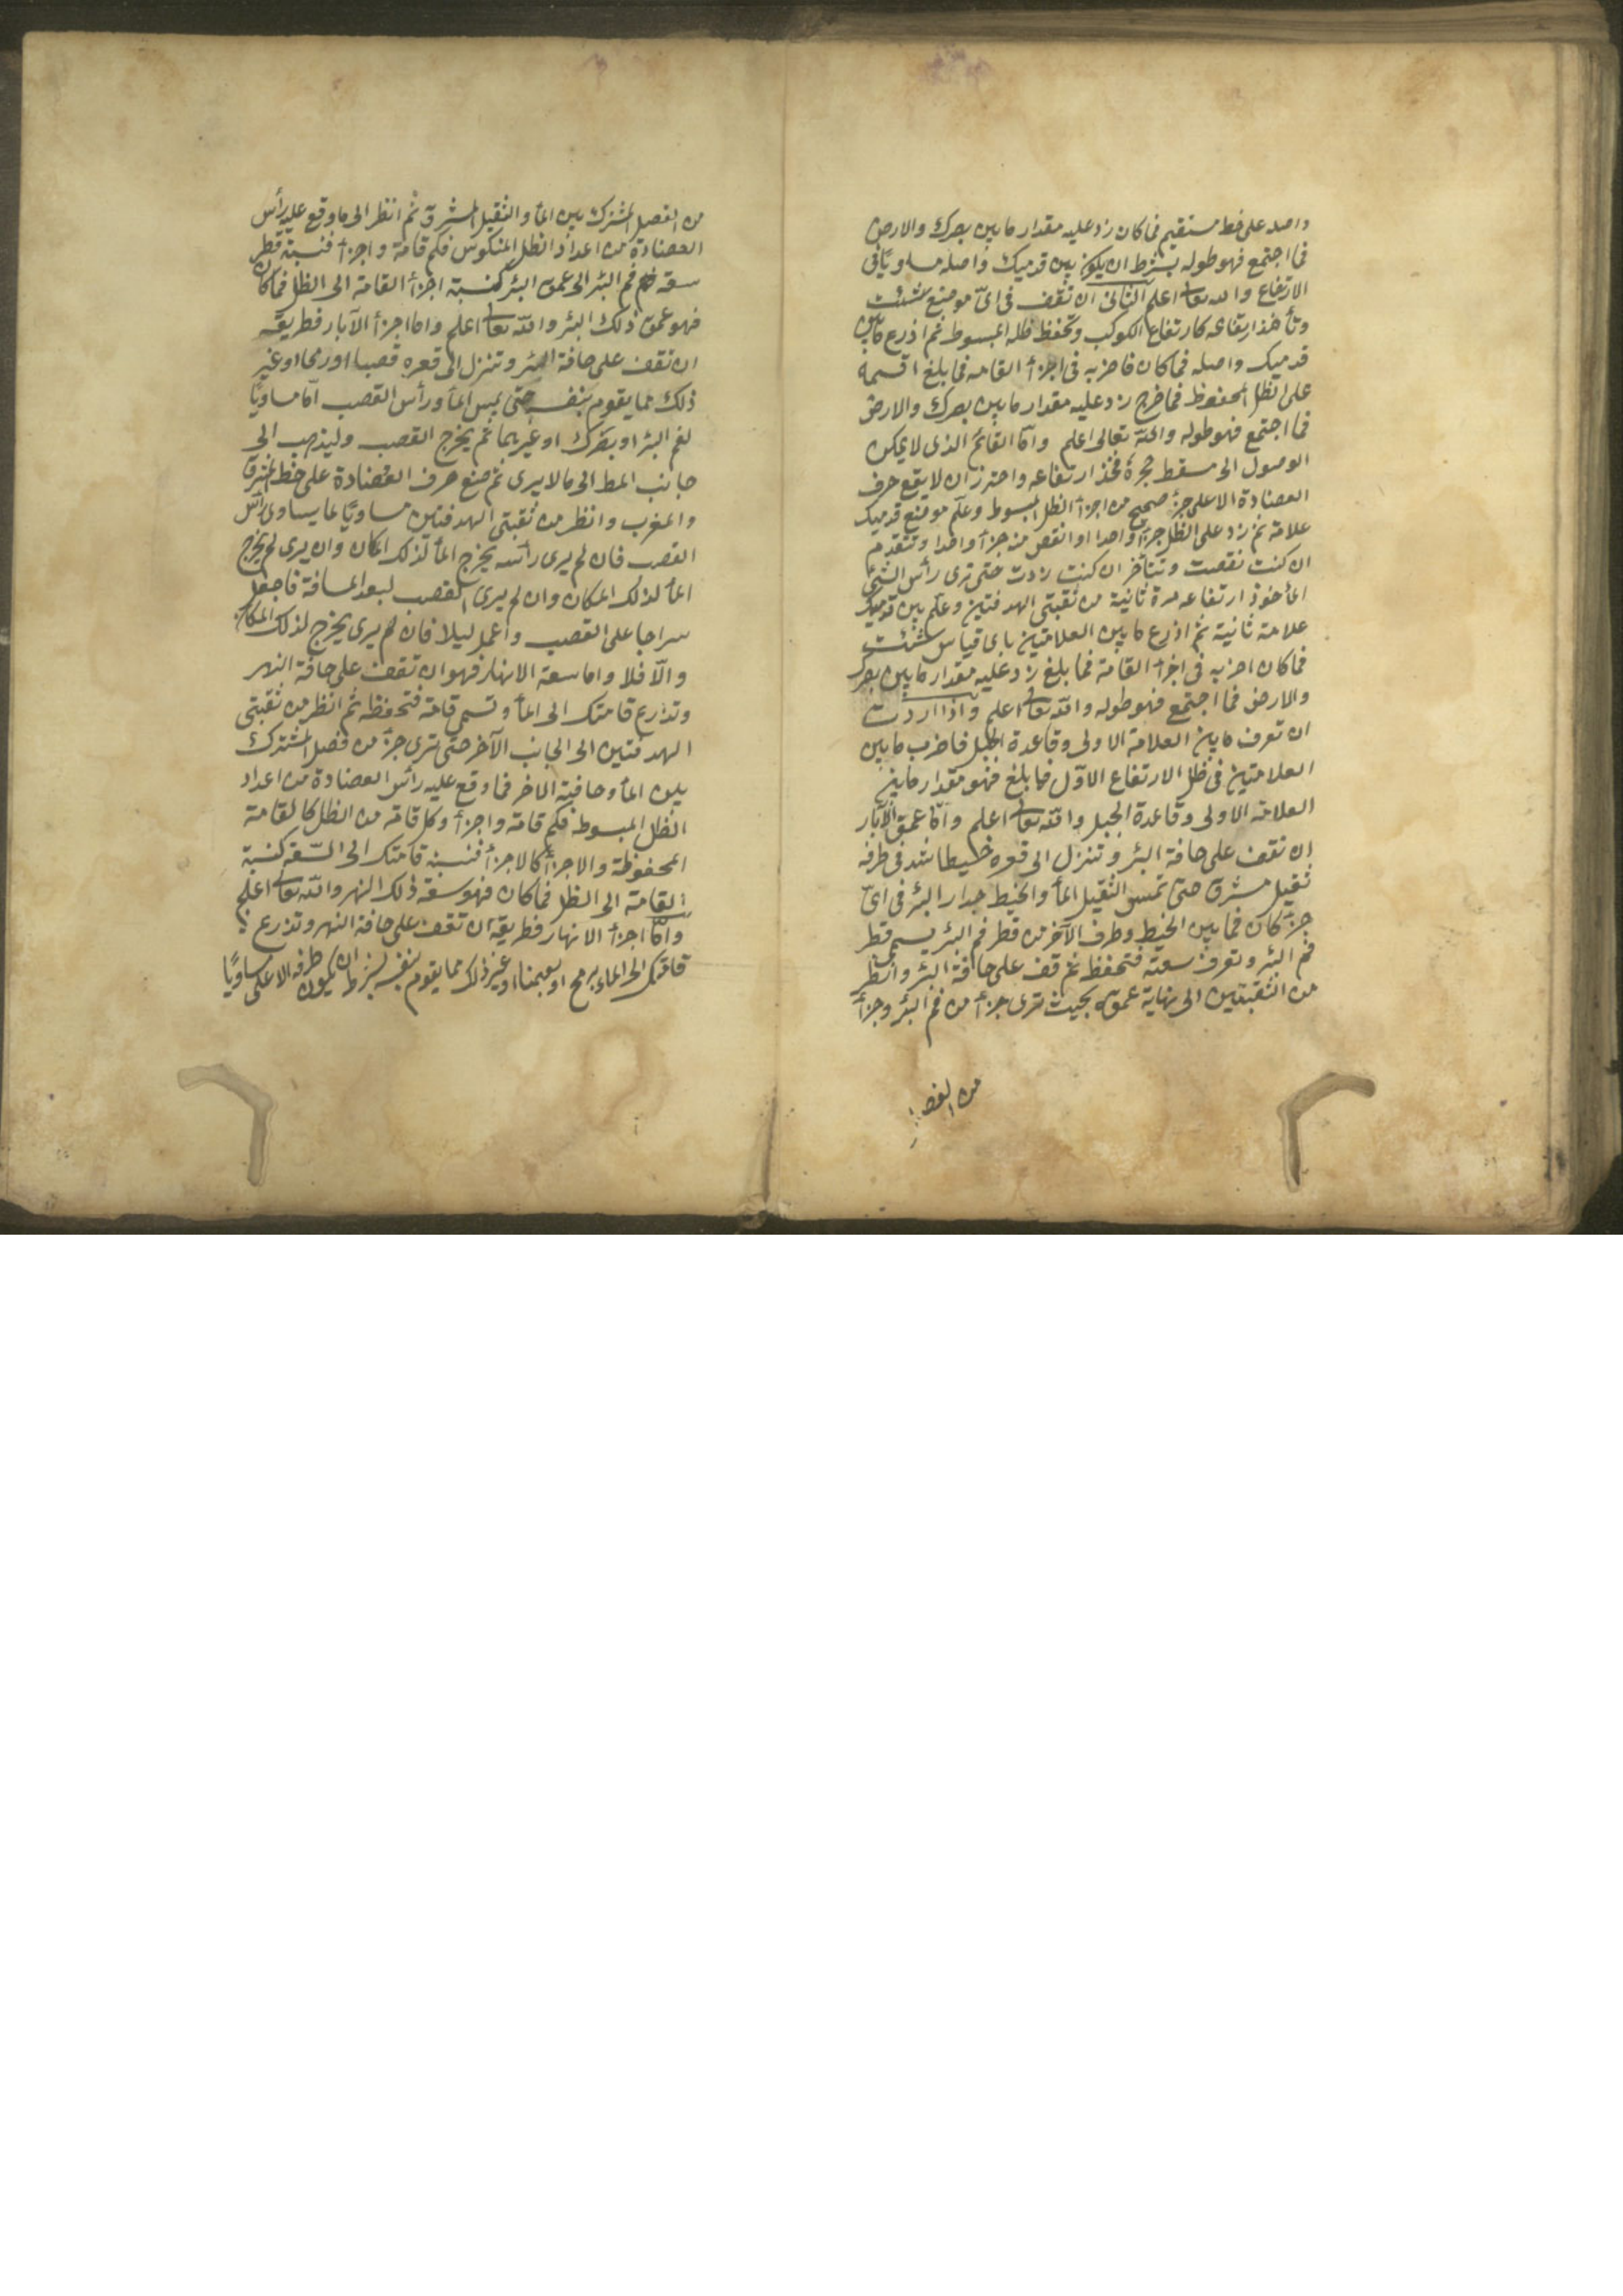 واصله على خط مستقيم فما كان زد عليه مقدار ما بين بصرك والارض
فما اجتمع فهو طوله بشرط ان يكون بين قدميك واصله مساويا في
الارتفاع والله تعالى اعلم الثانى ان تقف فى اىّ موضع شئت
وتأخذ ارتفاعه كارتفاع الكوكب وتحفظ ظله المبسوط ثم اذرع مابين
قدميك واصله فما كان فاضربه فى اجزأ القامه فما بلغ اقسمه
على الظل المحفوظ فما خرج زد عليه مقدار ما بين بصرك والارض
فما اجتمع فهو طوله والله تعالى اعلم وامّا القائم الذى لا يمكن
الوصول الى مسقط حجره فخذ ارتفاعه واحترز ان لا يقع حرف
العضادة الا على جزء صحيح من اجزأ الظل المبسوط وعلّم موضع قدميك
علامة ثم زد على الظل جزأ واحدا او انقص منه جزأ واحدا وتتقدم
ان كنت نقصت وتتأخر ان كنت زدت حتى ترى رأس الشئ
المأخوذ ارتفاعه مرة ثانية من ثقبتى الهدفتين وعلّم بين قدميك
علامة ثانية ثم اذرع ما بين العلامتين باى قياس شئت
فما كان اضربه فى اجزأ القامة فما بلغ زد عليه مقدار ما بين بصرك
والارض فما اجتمع فهو طوله والله تعالى اعلم واذا اردت
ان تعرف ما بين العلامة الاولى وقاعدة الجبل فاضرب ما بين
العلامتين فى ظل الارتفاع الاوّل فما بلغ فهو مقدار ما بين
العلامة الاولى وقاعدة الجبل والله تعالى اعلم وامّا عمق الآبار
ان تقف على حافة البئر وتنزل الى قعره خيطا شد فى طرفه
ثقيل مشرق حتى تمس الثقيل المأ والخيط جدار البئر فى اىّ
جزء كان فما بين الخيط وطرف الآخر من قطر فم البئر يسمى قطر
فم البئر وتعرف سعته فتحفظ ثم قف على حافة البئر وانظر
من الثقبتين الى نهاية عمقه بحيث ترى جزأ من فم البئر وجزأ
من الفصل
من الفصل المشترك بين المأ والثقيل المشرق ثم انظر الى ما وقع عليه رأس
العضادة من اعداد الظل المنكوس فكم قامة واجزأ فنسبة قطر
سعة فم البئر الى عمق البئر كنسبة اجزأ القامة الى الظل فما كان
فهو عمق ذلك البئر والله تعالى اعلم واما اجزأ الآبار فطريقه
ان تقف على حافة البئر وتنزل الى قعره قصبا او رمحا او غير
ذلك مما يقوم بنفسه حتى يمس المأ ورأس القصب امّا مساويّا
لفم البئر او بصرك او غيرهما ثم يخرج القصب وليذهب الى
جانب المط الى ما لا يرى ثم ضع حرف العضادة على خط المشرق
والمغرب وانظر من ثقبتى الهدفتين مساويّا لما يساوى رأس
القصب فان لم يرى رأسه يخرج المأ لذلك المكان وان يرى لم يخرج
المأ لذلك المكان وان لم يرى القصب لبعد المسافة فاجعل
سراجا على القصب واعمل ليلا فان لم يرى يخرج لذلك المكان
والّا فلا واما سعة الانهار فهو ان تقف على حافة النهر
وتذرع قامتك الى المأ وتسمى قامة فتحفظه ثم انظر من ثقبتى
الهدفتين الى الجانب الآخر حتى ترى جزء من فصل المشترك
بين المأ وحافية الاخر فما وقع عليه رأس العضادة من اعداد
الظل المبسوط فكم قامة واجزأ وكل قامة من الظل كالقامة
المحفوظة والاجزأ كالاجزأ فنسبة قامتك الى السّعة كنسبة
القامة الى الظل فما كان فهو سعة ذلك النهر والله تعالى اعلم
وامّا اجزأ الانهار فطريقه ان تقف على حافة النهر وتذرع
قامتك الى الماء برمح او بعصا او غير ذلك مما يقوم بنفسه بشرط ان يكون طرفه الاعلى مساويًا